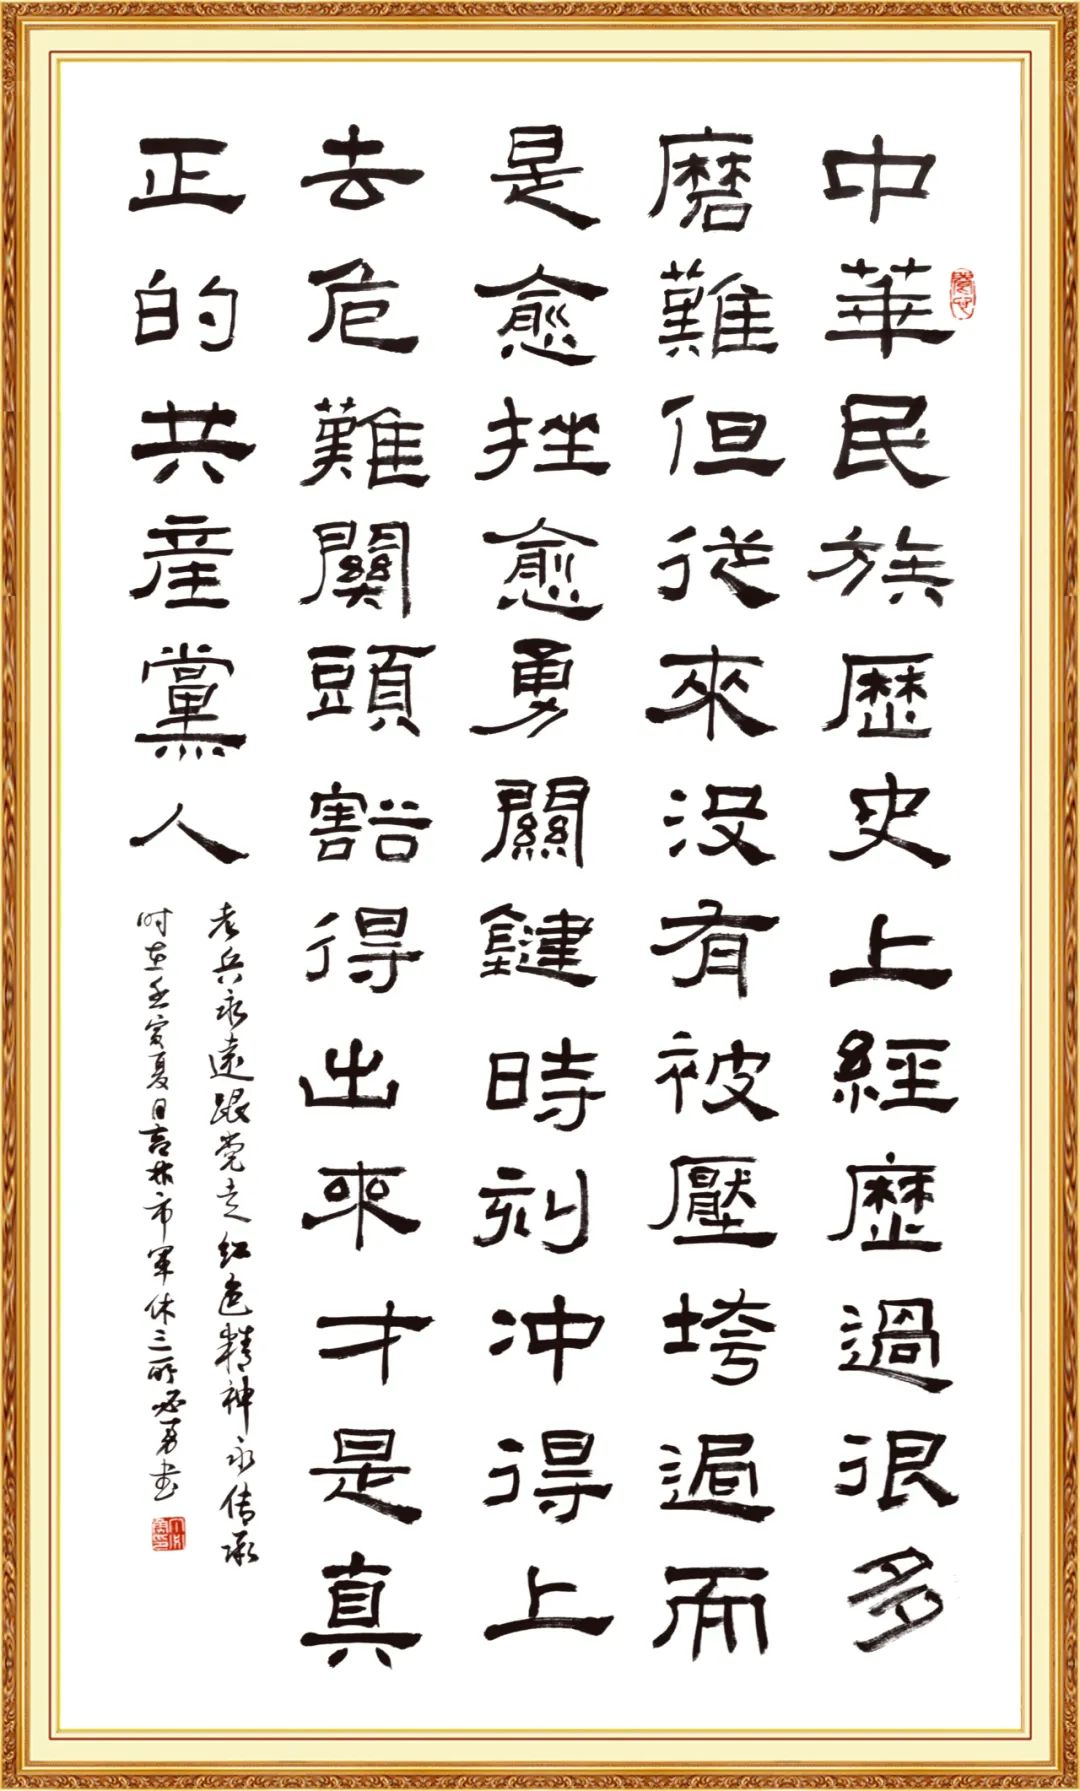 中華民族歷史上經歷過很多
磨難但從來沒有被壓垮過而
是愈挫愈勇關鍵時刻沖得上
去危難關頭豁得出來才是真
正的共産黨人
老兵永遠跟党走红色精神永传承
时在壬寅夏日吉林市军休三所必勇书